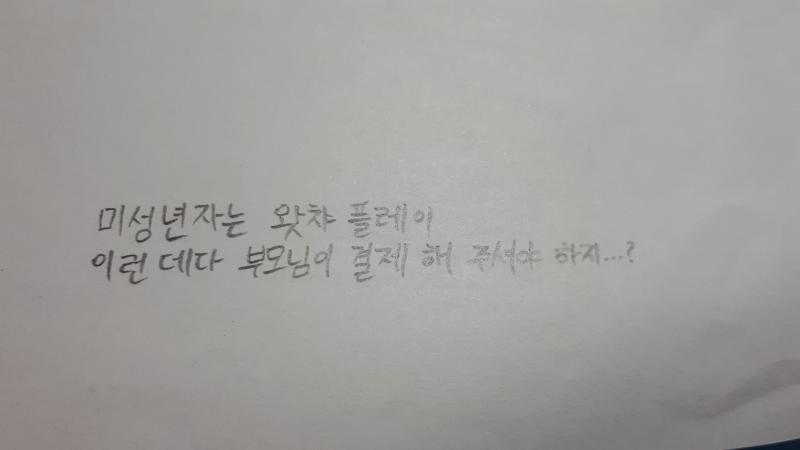 미성년자는 왓챠 플레이
이런 데다 부모님이 결제 해 주셔야 하지...?